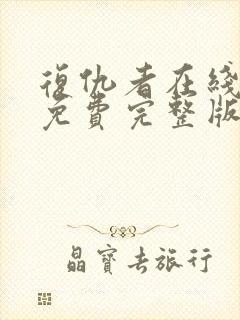 復仇者在綫
免費完整版
晶寳去旅行